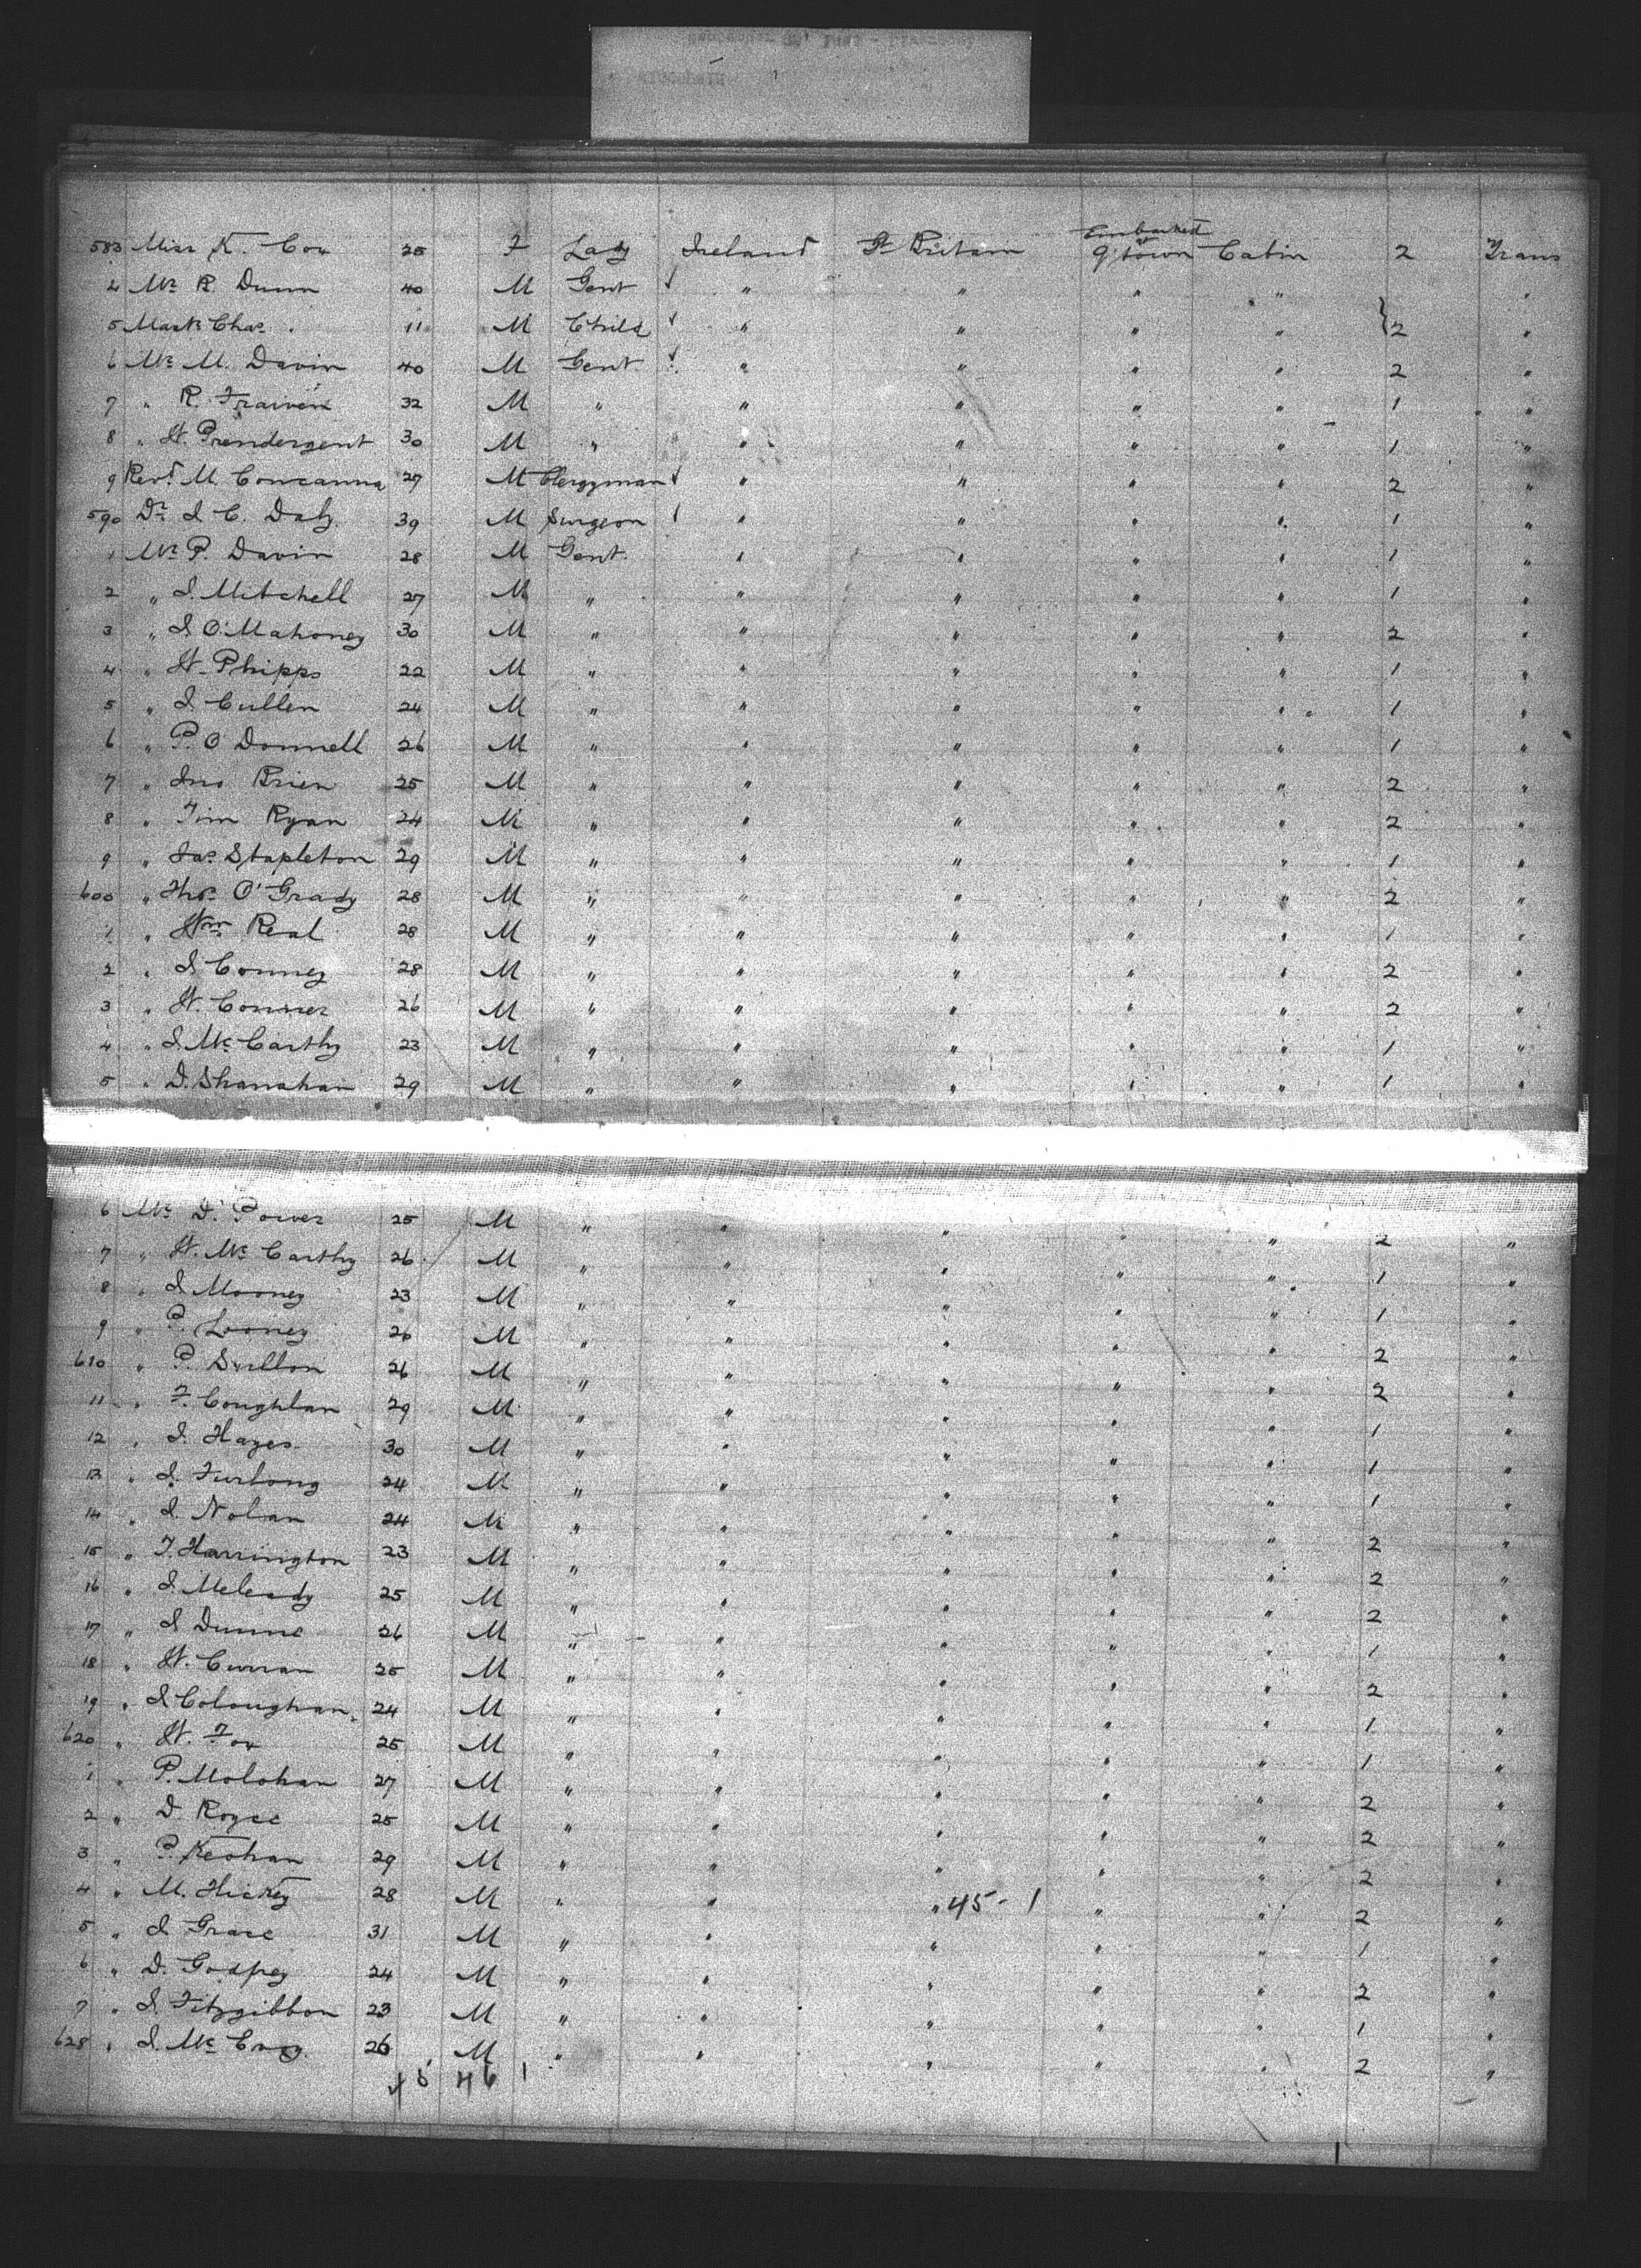 Embarked
583 Miss K. Cox 25 F Lady Ireland Gt Britain at Q'town Cabin 2 Trans
4 Mr R. Dunn 40 M Gent " " " " "
5 Mastr Chas " 11 M Child " " " " 2 "
6 Mr M. Davin 40 M Gent " " " " 2 "
7 " R. 32 M " " " " " 1 "
8 " W. Prendergent 30 M " " " " " 1 "
9 Revd M. Concanna 29 M Clergyman " " " " 2 "
590 Dr J C. Daly 39 M Surgeon " " " " 1 "
1 Mr P. Davin 28 M Gent. " " " " 1 "
2 " J. Mitchell 27 M " " " " " 1 "
3 " J. O'Mahoney 30 M " " " " " 2 "
4 " W. Phipps 22 M " " " " " 1 "
5 " J. Cullen 24 M " " " " " 1 "
6 " P. O'Donnell 26 M " " " " " 1 "
7 " Jno Brien 25 M " " " " " 2 "
8 " Tim Ryan 24 M " " " " " 2 "
9 " Jas Stapleton 29 M " " " " " 1 "
600 " Thos O'Grady 28 M " " " " " 2 "
1 " Wm Real 28 M " " " " " 1 "
2 " J. Conney 28 M " " " " " 2 "
3 " W. Conner 26 M " " " " " 2 "
4 " J. McCarthy 23 M " " " " " 1 "
5 " D. Shanahan 29 M " " " " " 1 "
6 Mr D. Power 25 M " " " " " 2 "
7 " W. McCarthy 26 M " " " " " 1 "
8 " J. Mooney 23 M " " " " " 1 "
9 " P. Looney 26 M " " " " " 2 "
610 " P. 26 M " " " " " 2 "
11 " F. Coughlan 29 M " " " " " 1 "
12 " J. Hayes 30 M " " " " " 1 "
13 " J. Furlong 24 M " " " " " 1 "
14 " J. Nolan 24 M " " " " " 2 "
15 " T. Harrington 23 M " " " " " 2 "
16 " J. Melendy 25 M " " " " " 2 "
17 " J. Dunne 26 M " " " " " 1 "
18 " W. Curran 25 M " " " " " 2 "
19 " J. Coloughan 24 M " " " " " 1 "
620 " W. Fox 25 M " " " " " 1 "
1 " P. Molohan 27 M " " " " " 2 "
2 " D. Royce 25 M " " " " " 2 "
3 " P. Keohan 29 M " " " " " 2 "
4 " M. Hickey 28 M " " " 45-1 " " 2 "
5 " J. Grace 31 M " " " " " 1 "
6 " D. Godfrey 24 M " " " " " 2 "
7 " J. Fitzgibbon 23 M " " " " " 1 "
628 " J. McCoy 26 M " " " " " 2 "
45 46 1